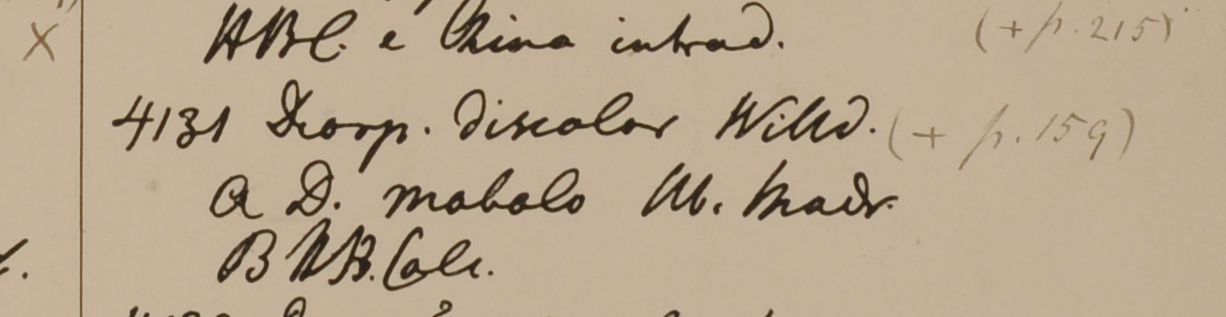 X HBC. e China introd. (+ p. 215)
4131 Diosp. discolor Willd. (+ p. 159)
A D. mabolo Hb. Madr.
B HB. Calc.